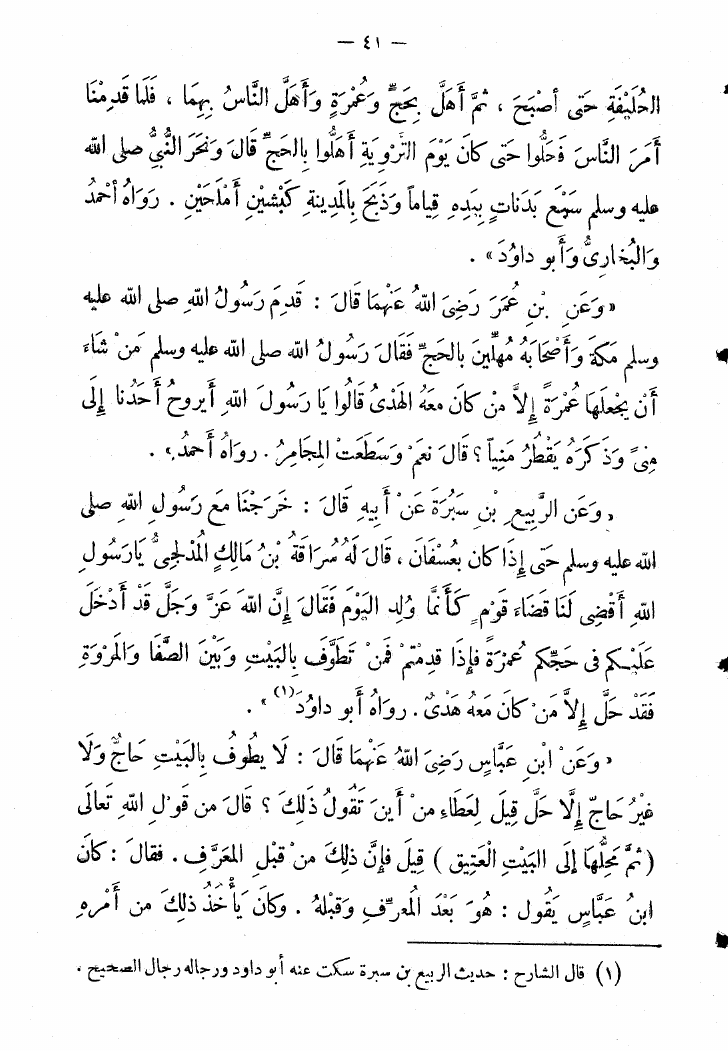 — ٤١ —
الحُلَيْفَةِ حَتى أصْبَحَ ، ثمَّ أَهَلَّ بِحَجٍّ وَعُمْرَةٍ وَأَهَلَّ النَّاسُ بِهِمَا ، فَلَما قَدِمْنَا
أَمَرَ النَّاسَ فَحَلُّوا حَتى كانَ يَوْمَ التَّرْوِيَةِ أَهَلُّوا بِالحَجِّ قَالَ وَنَحَرَ النَّبِيُّ صلى الله
عليه وسلم سَبْعَ بَدَنَاتٍ بِيَدِهِ قِياماً وَذَبَحَ بِالمَدِينَةِ كَبْشَيْنِ أَمْلَحَيْنِ . رَوَاهُ أَحْمدُ
وَالبُخارِىُّ وَأَبو داوُدَ» .
«وَعَنِ بْنِ عُمَرَ رَضِىَ اللهُ عَنْهُمَا قَالَ : قَدِمَ رَسُولُ اللهِ صلى الله عليه
وسلم مَكَةَ وَأَصْحَابَهُ مُهِلِّينَ بِالحَجِّ فَقَالَ رَسُولُ الله صلى الله عليه وسلم مَنْ شَاءَ
أَنْ يجْعَلَهَا عُمْرَةً إِلاَّ مَنْ كَانَ مَعَهُ الهَدْىُ قَالُوا يَا رَسُولَ اللهِ أَيروحُ أَحَدُنا إِلَى
مِنىً وَذَكَرَهُ يَقْطُرُ مَنِياً ؟ قَالَ نَعَمْ وَسَطَعَتْ المِجَامِرُ . رواهُ أَحمدُ» .
«وَعَن الرَّبِيعِ بْنِ سَبْرَةَ عَنْ أَبِيهِ قَالَ : خَرَجْنَا مَعَ رَسُولِ اللهِ صلى
الله عليه وسلم حَتى إِذَا كان بعُسْفَانَ ، قَالَ لَهُ سُرَاقَةُ بْنُ مَالِكٍ المُدْلجِىُّ يَارَسُولَ
اللهِ أَقْضِى لَنَا قَضَاءَ قَوْمٍ كَأَنمَّا وُلِد اليَوْمَ فَقَالَ إِنَّ اللهَ عَزَّ وَجَلَّ قَدْ أَدْخَلَ
عَلَيْكم فى حَجِّكم عُمْرَةً فإِذَا قدِمْتمْ فمنْ تَطَوَّفَ بِالبَيْتِ وَبَيْنَ الصَّفَا وَالمَرْوَةِ
فَقَدْ حَلَّ إِلاَّ مَن كانَ مَعَهُ هَدْىٌ . رَوَاهُ أَبو داوُدَ(١)» .
«وَعَنْ ابْنِ عَبَّاسٍ رَضِىَ اللهُ عَنْهُمَا قَالَ : لَا يَطُوفُ بِالبَيْتِ حَاجٌّ وَلَا
غيْرُ حَاجّ إِلَّا حَلَّ قِيلَ لِعَطَاءِ منْ أَينَ تَقُولُ ذَلِكَ ؟ قَالَ من قَولِ اللهِ تَعَالَى
( ثمَّ مَحِلُّهَا إِلَى البَيْتِ العَتِيقِ ) قِيلَ فإِنَّ ذَلِكَ منْ قبْلِ المعَرَّفِ . فقالَ : كانَ
ابنُ عَبَّاسٍ يَقُول : هُوَ بَعْدَ المُعرِّفِ وَقبْلهُ . وكانَ يَأْخُذُ ذلِكَ من أَمْرهِ
(١) قال الشارح : حديث الربيع بن سبرة سكت عنه أبو داود ورجاله رجال الصحيح .